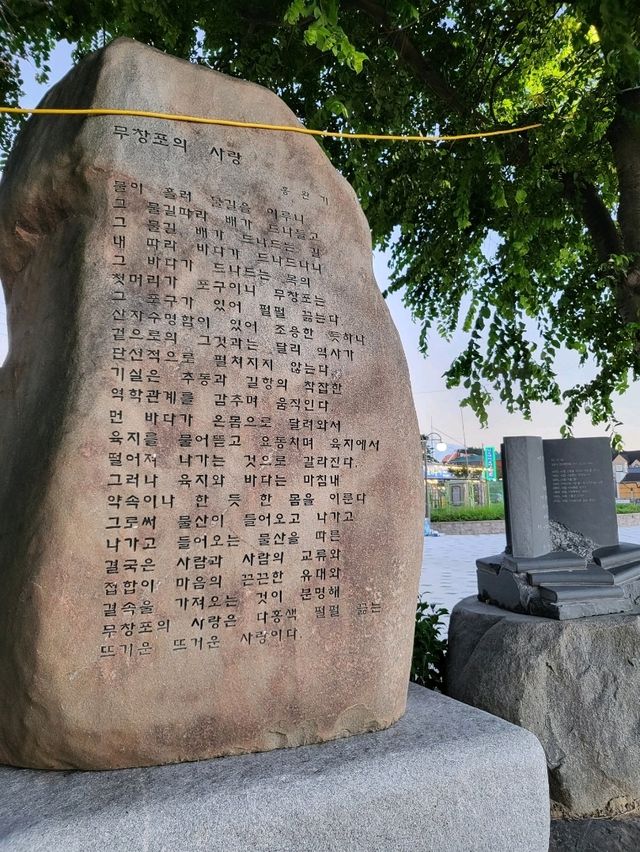 무창포의 사랑
홍 완 기
물이 흘러 물길을 이루니
그 물길따라 배가 드나들고
그 물길 배가 드나드는 길
내 따라 바다가 드나드나니
그 바다가 드나드는 목의
첫머리가 포구이니 무창포는
그 포구가 있어 펄펄 끓는다
산자수명함이 있어 조용한 듯하나
겉으로의 그것과는 달리 역사가
단선적으로 펼쳐지지 않는다
기실은 추동과 길항의 착잡한
역학관계를 감추며 움직인다
먼 바다가 온몸으로 달려와서
육지를 물어뜯고 요동치며 육지에서
떨어져 나가는 것으로 갈라진다.
그러나 육지와 바다는 마침내
약속이나 한 듯 한 몸을 이룬다
그로써 물산이 들어오고 나가고
나가고 들어오는 물산을 따른
결국은 사람과 사람의 교류와
접합이 마음의 끈끈한 유대와
결속을 가져오는 것이 분명해
무창포의 사랑은 다홍색 펄펄 끓는
뜨거운 뜨거운 사랑이다